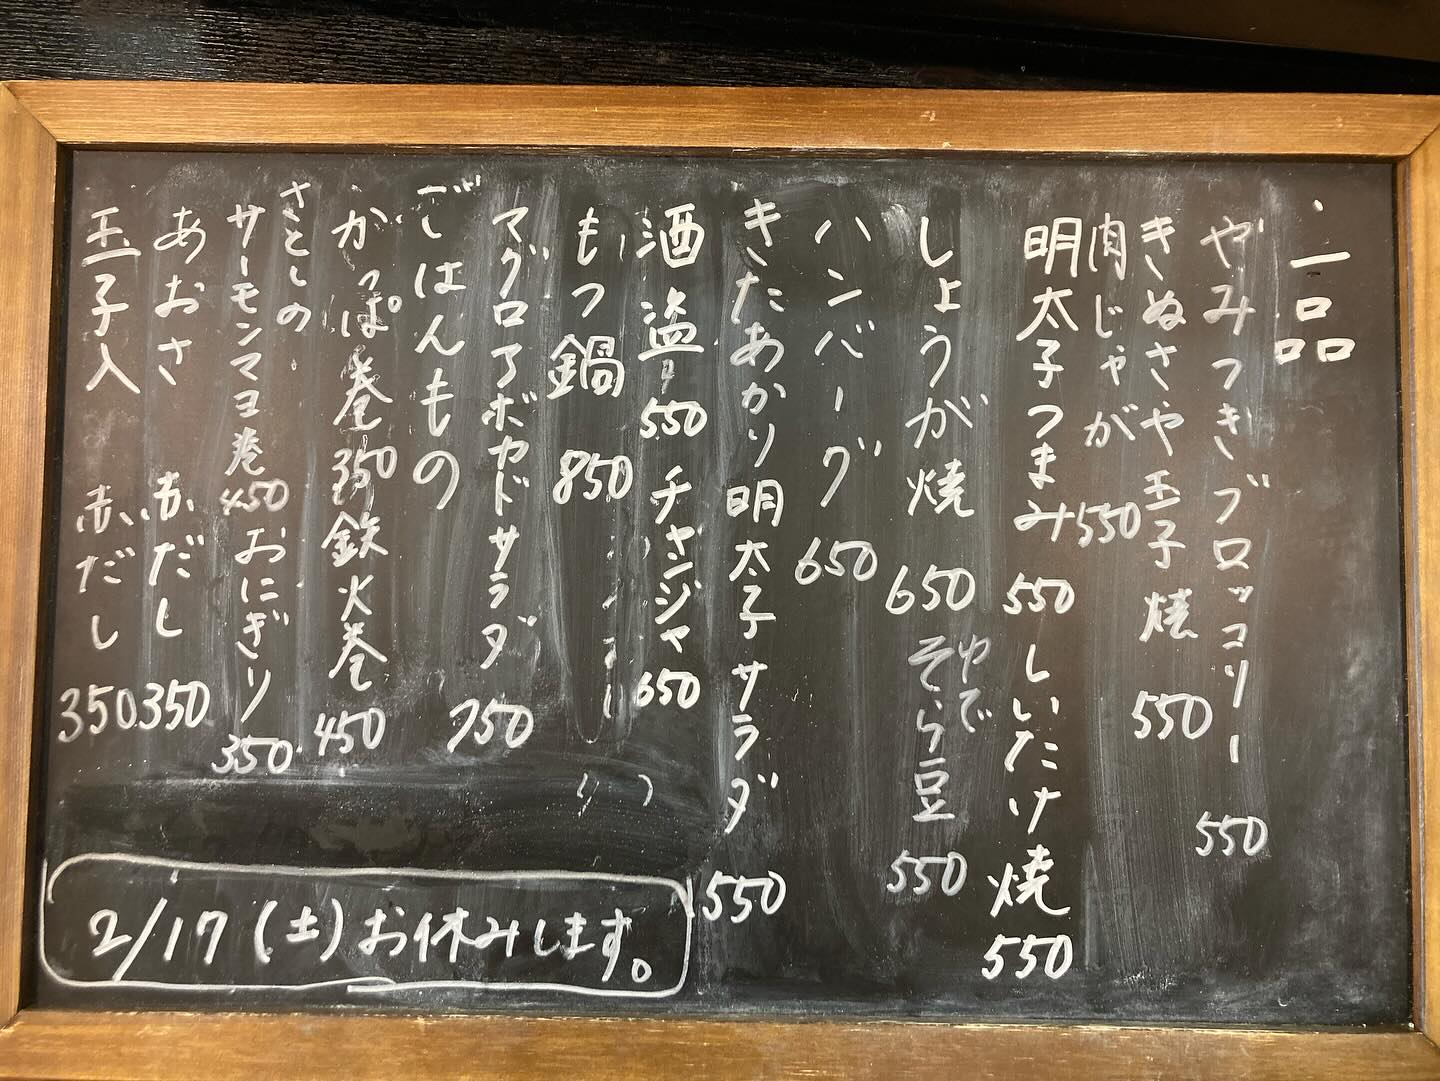 一品
やみつきブロッコリー 550
きぬさや玉子焼 550
肉じゃが 550
明太子つまみ 550 しいたけ焼 550
しょうが焼 650 ゆでそら豆 550
ハンバーグ 650
きたあかり明太子サラダ 550
酒盗 550 チャンジャ 650
もつ鍋 850
マグロアボカドサラダ 750
ごはんもの
かっぱ巻 350 鉄火巻 450
さとしの
サーモンマヨ巻 450 おにぎり 350
あおさ 赤だし 350
玉子入 赤だし 350
2/17(土)お休みします。